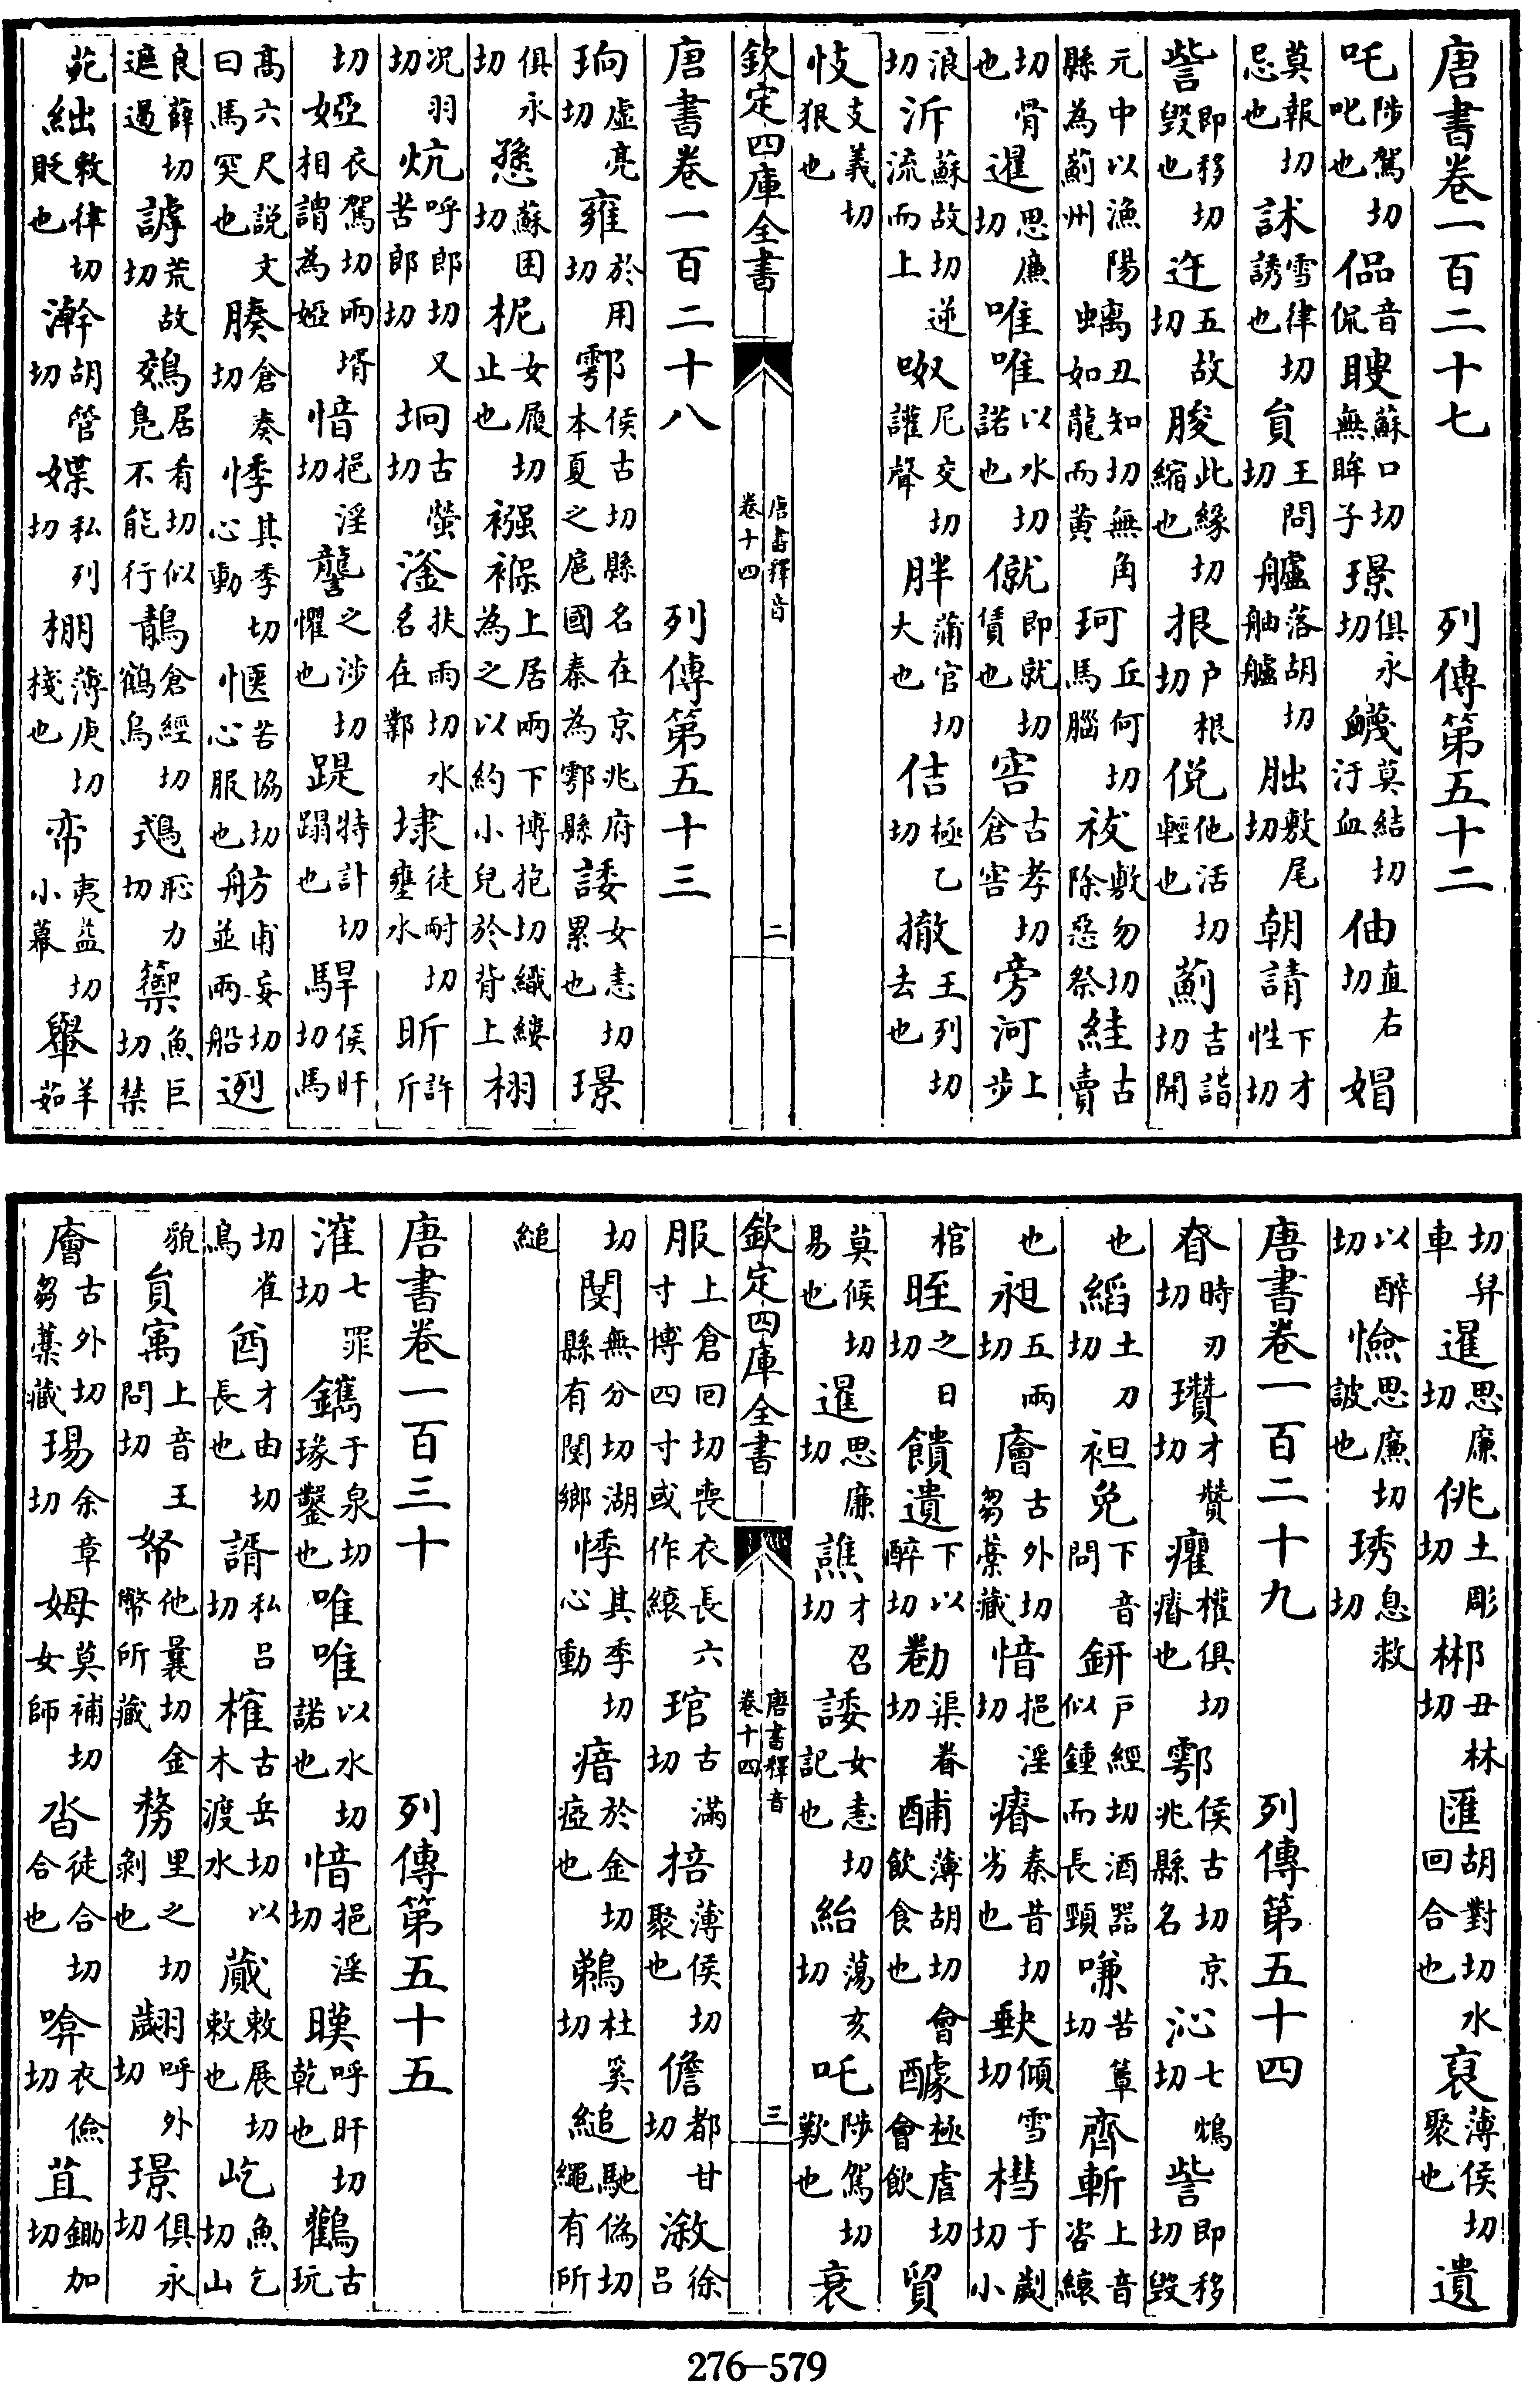 唐書卷一百二十七　　列傳第五十二
吒陟駕切叱也 偘音侃 瞍蘇口切無眸子 璟俱永切 衊莫結切汙血 伷直右切 媢
莫報切忌也 訹雪律切誘也 貟王問切 艫落胡切舳艫 朏敷尾切 朝請下才性切
訾即移切毀也 迕五故切 朘此緣切縮也 拫户根切 侻他活切輕也 薊吉詣切開
元中以漁陽縣為薊州 螭丑知切無角如龍而黄 珂丘何切馬腦 祓敷勿切除惡祭 絓古賣
切骨也 暹思廉切 唯唯以水切諾也 僦即就切賃也 窖古孝切倉窖 旁河上步
浪切 泝蘇故切逆流而上 呶尼交切讙聲 胖蒲官切大也 佶極乙切 撤王列切去也
忮支義切狠也
欽定四庫全書　唐書釋音卷十四　二
唐書卷一百二十八　　列傳第五十三
珦虚亮切 雍於用切 鄠侯古切縣名在京兆府本夏之扈國秦為鄠縣 諉女恚切累也 璟
俱永切 愻蘇困切 柅女履切止也 襁褓上居兩下博抱切織縷為之以約小兒於背上 栩
况羽切 炕呼郎切又苦郎切 坰古螢切 滏扶雨切水名在鄴 埭徒耐切壅水 昕許斤
切 婭衣駕切兩壻相謂為婭 愔挹淫切 讋之涉切懼也 踶特計切蹋也 駻侯旰切馬
髙六尺説文曰馬突也 腠倉奏切 悸其季切心動 愜苦協切心服也 舫甫妄切並兩船 迾
良薛切遮遏 謼荒故切 鵁居肴切似鳧不能行 鶄倉經切鶴烏 鵡恥力切 籞魚巨切禁
苑 絀敕律切貶也 澣胡管切 媟私列切 棚薄庚切棧也 帟夷益切小幕 轝羊茹
切舁車 暹思廉切 佻土彫切 郴丑林切 匯胡對切水回合也 裒薄侯切聚也 遺
以醉切 憸思廉切詖也 琇息救切
唐書卷一百二十九　　列傳第五十四
眘時刃切 瓚才贊切 癯權俱切瘠也 鄠侯古切京兆縣名 沁七鴆切 訾即移切毀
也 縚土刀切 袒免下音問 鈃户經切酒器似鍾而長頸 嗛苦簟切 齊斬上音咨縗
也 昶五兩切 廥古外切芻藁藏 愔挹淫切 瘠秦昔切劣也 缺傾雪切 槥于歲切小
棺 晊之日切 饋遺下以醉切 勌渠眷切 酺薄胡切會飲食也 醵極虐切會飲 貿
莫候切易也 暹思廉切 譙才召切 諉女恚切記也 紿蕩亥切 吒陟駕切歎也 衰
欽定四庫全書　唐書釋音卷十四　三
服上倉回切喪衣長六寸博四寸或作縗 琯古滿切 掊薄侯切聚也 儋都甘切 漵徐吕
切 閿無分切湖縣有閿鄉 悸其季切心動 瘖於金切瘂也 鵜杜奚切 縋馳偽切繩有所
縋
唐書卷一百三十　　列傳第五十五
漼七罪切 鐫于泉切瑑鑿也 唯唯以水切諾也 愔挹淫切 暵呼旰切乾也 鸛古玩
切雀鳥 酋才由切長也 諝私吕切 榷古岳切以木渡水 蕆敕展切敕也 屹魚乞切山
貌 貟寓上音王問切 帑他曩切金幣所藏 剺里之切剝也 翽呼外切 璟俱永切
廥古外切芻藁藏 瑒余章切 姆莫補切女師 沓徒合切合也 嗛衣儉切 苴鋤加切
276-579